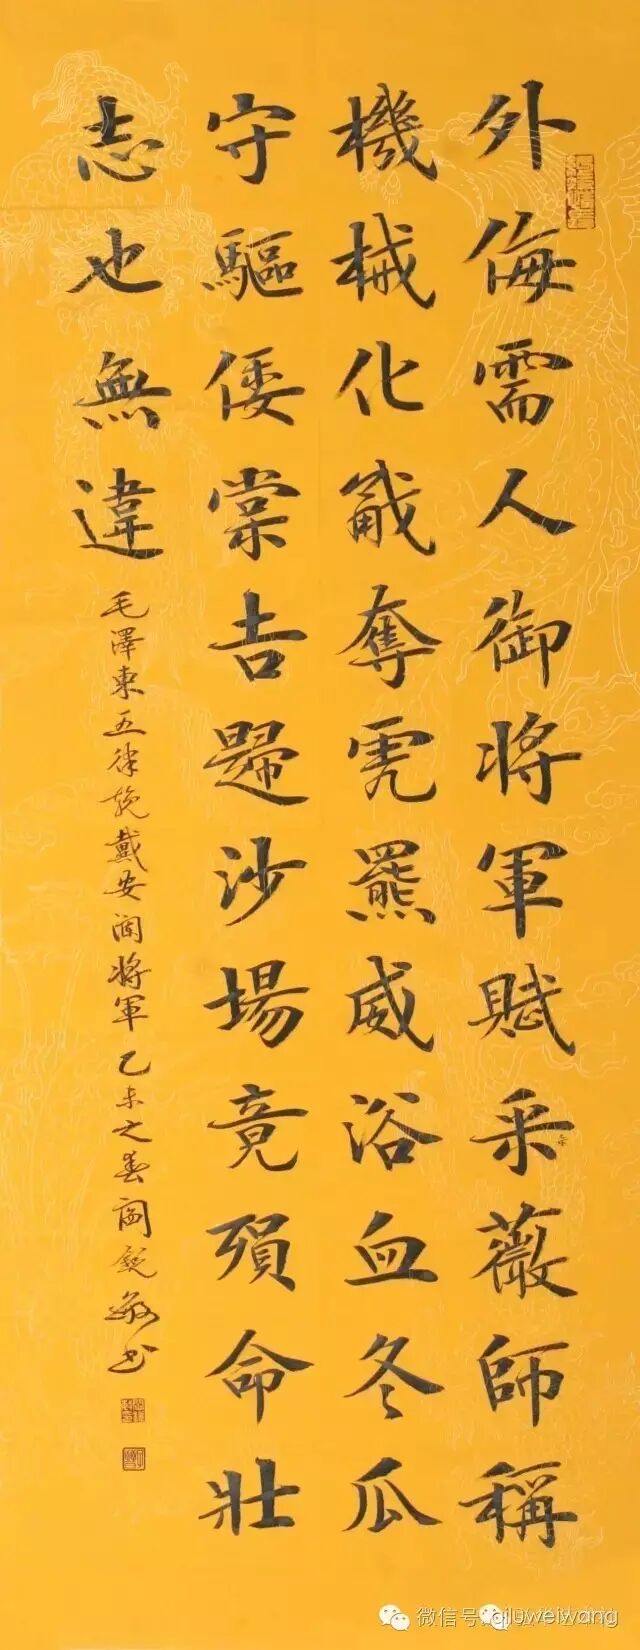 外侮需人御將軍賦采薇師稱
機械化戰奪虎羆威浴血冬瓜
守驅倭棠吉歸沙場竟殞命壯
志也無違
毛澤東五律挽戴安瀾將軍 乙未之春 敏书
微信号: qiluweiwang